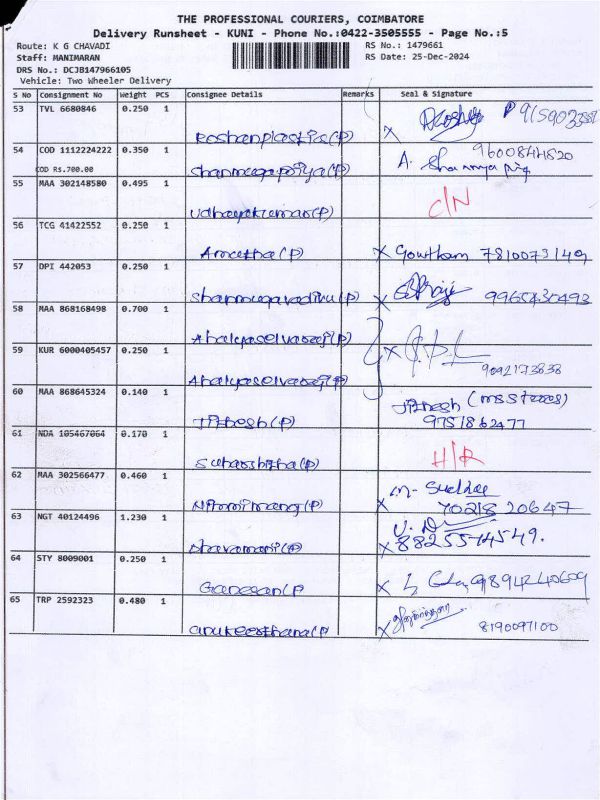 THE PROFESSIONAL COURIERS, COIMBATORE
Delivery Runsheet - KUNI - Phone No.:0422-3505555 - Page No.:5
Route: K G CHAVADI RS No.: 1479661
Staff: MANIMARAN RS Date: 25-Dec-2024
DRS No.: DCJB147966105
Vehicle: Two Wheeler Delivery
S No Consignment No Weight PCS Consignee Details Remarks Seal & Signature
53 TVL 6680846 0.250 1
Roshanplastis(P) X
54 COD 1112224222 0.350 1 9600844520
COD Rs.700.00 Shanmugapriya(P) A.
55 MAA 302148580 0.495 1 C/N
Udhayakumar(P)
56 TCG 41422552 0.250 1
(P) X Gowtham 7810073149
57 DPI 442053 0.250 1
Shanmugavadivu(P) X 9965435493
58 MAA 868168498 0.700 1
Ahalyaselvaraj(P) X
59 KUR 6000405457 0.250 1 9092173838
Ahalyaselvaraj(P)
60 MAA 868645324 0.140 1 Jithesh
Jithesh(P) 9751862477
61 NDA 105467064 0.170 1 H/R
(P)
62 MAA 302566477 0.460 1 M.
(P) X 70218 20647
63 NGT 40124496 1.230 1
Dhavamani(P) X 8825574549.
64 STY 8009001 0.250 1
Ganesan(P X
65 TRP 2592323 0.480 1
(P X 8190097100